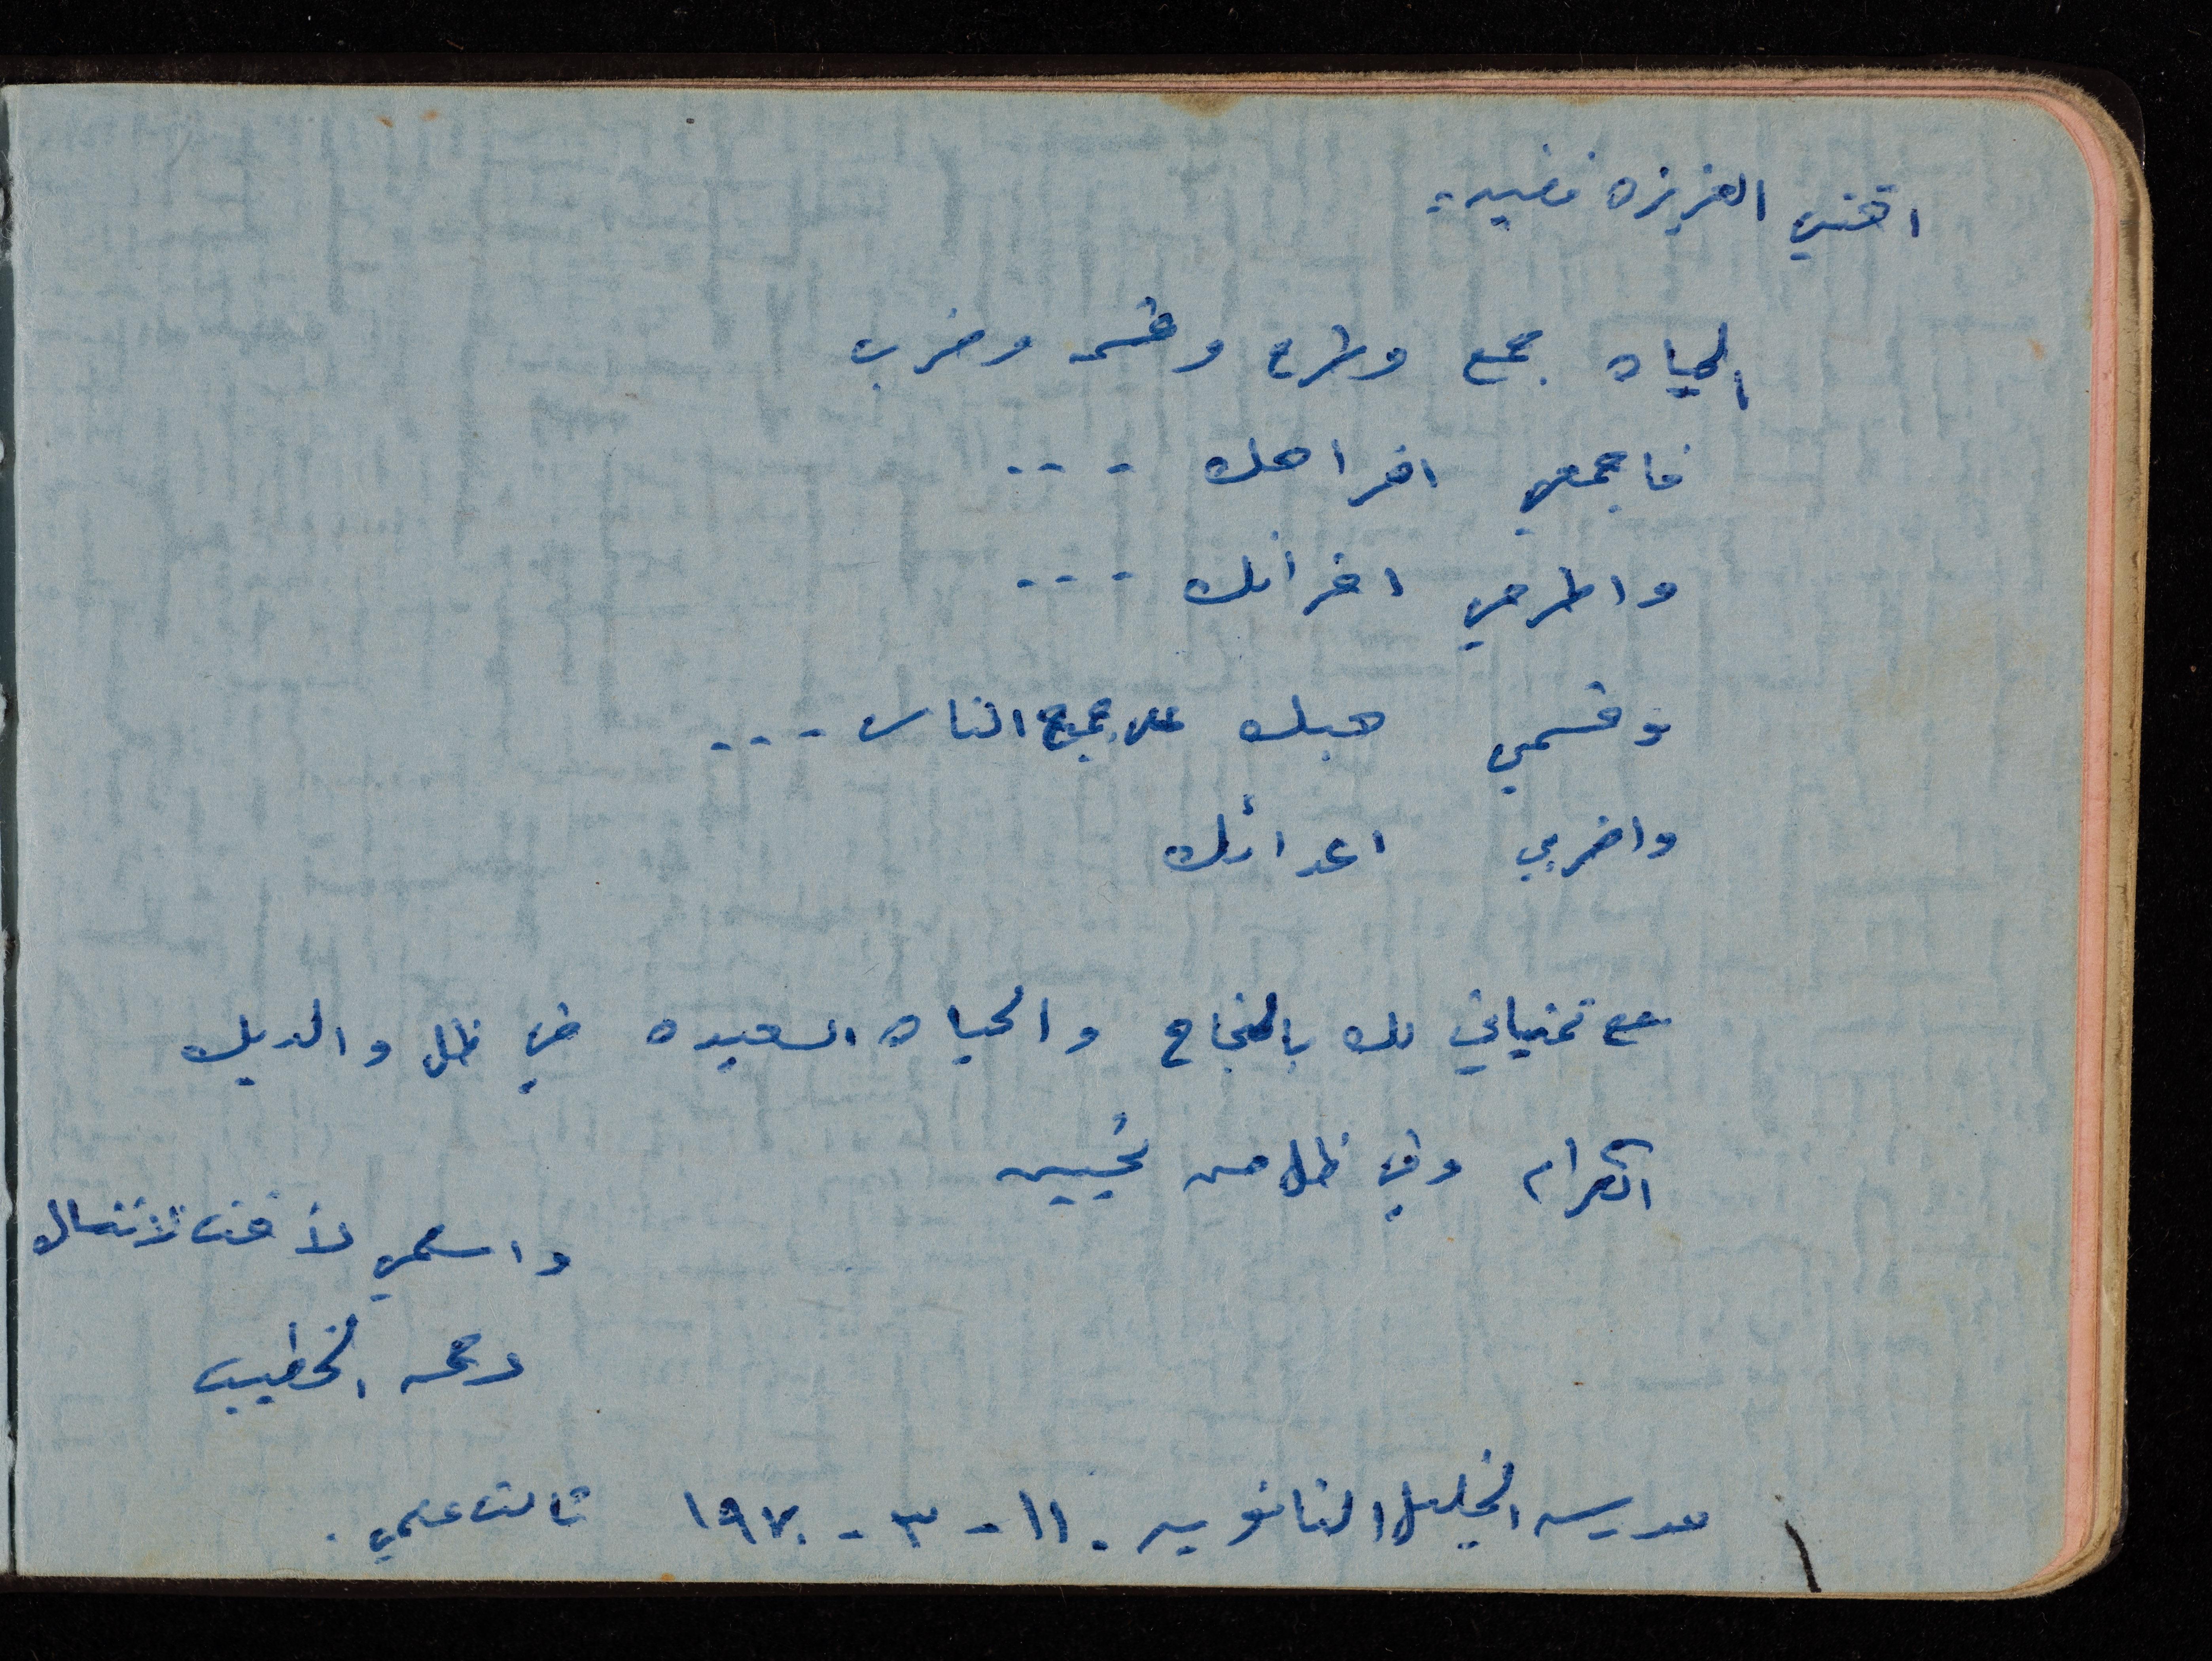 اختي العزيزه فضيه:
الحياه جمع وطرح وقسمه وضرب
فاجمعي افراحك ---
واطرحي احزانك ---
وقسمي حبك على جميع الناس ---
واضربي اعدائك
مع تمنياتي لك بالنجاح والحياه السعيده في ظل والديك
الكرام وفي ظل من تحبين
واسلمي لأخت لا تنساك
رحمه الخطيب
مدرسه الخليل الثانويه . ١١ - ٣ - ١٩٧٠ ثالث علمي .